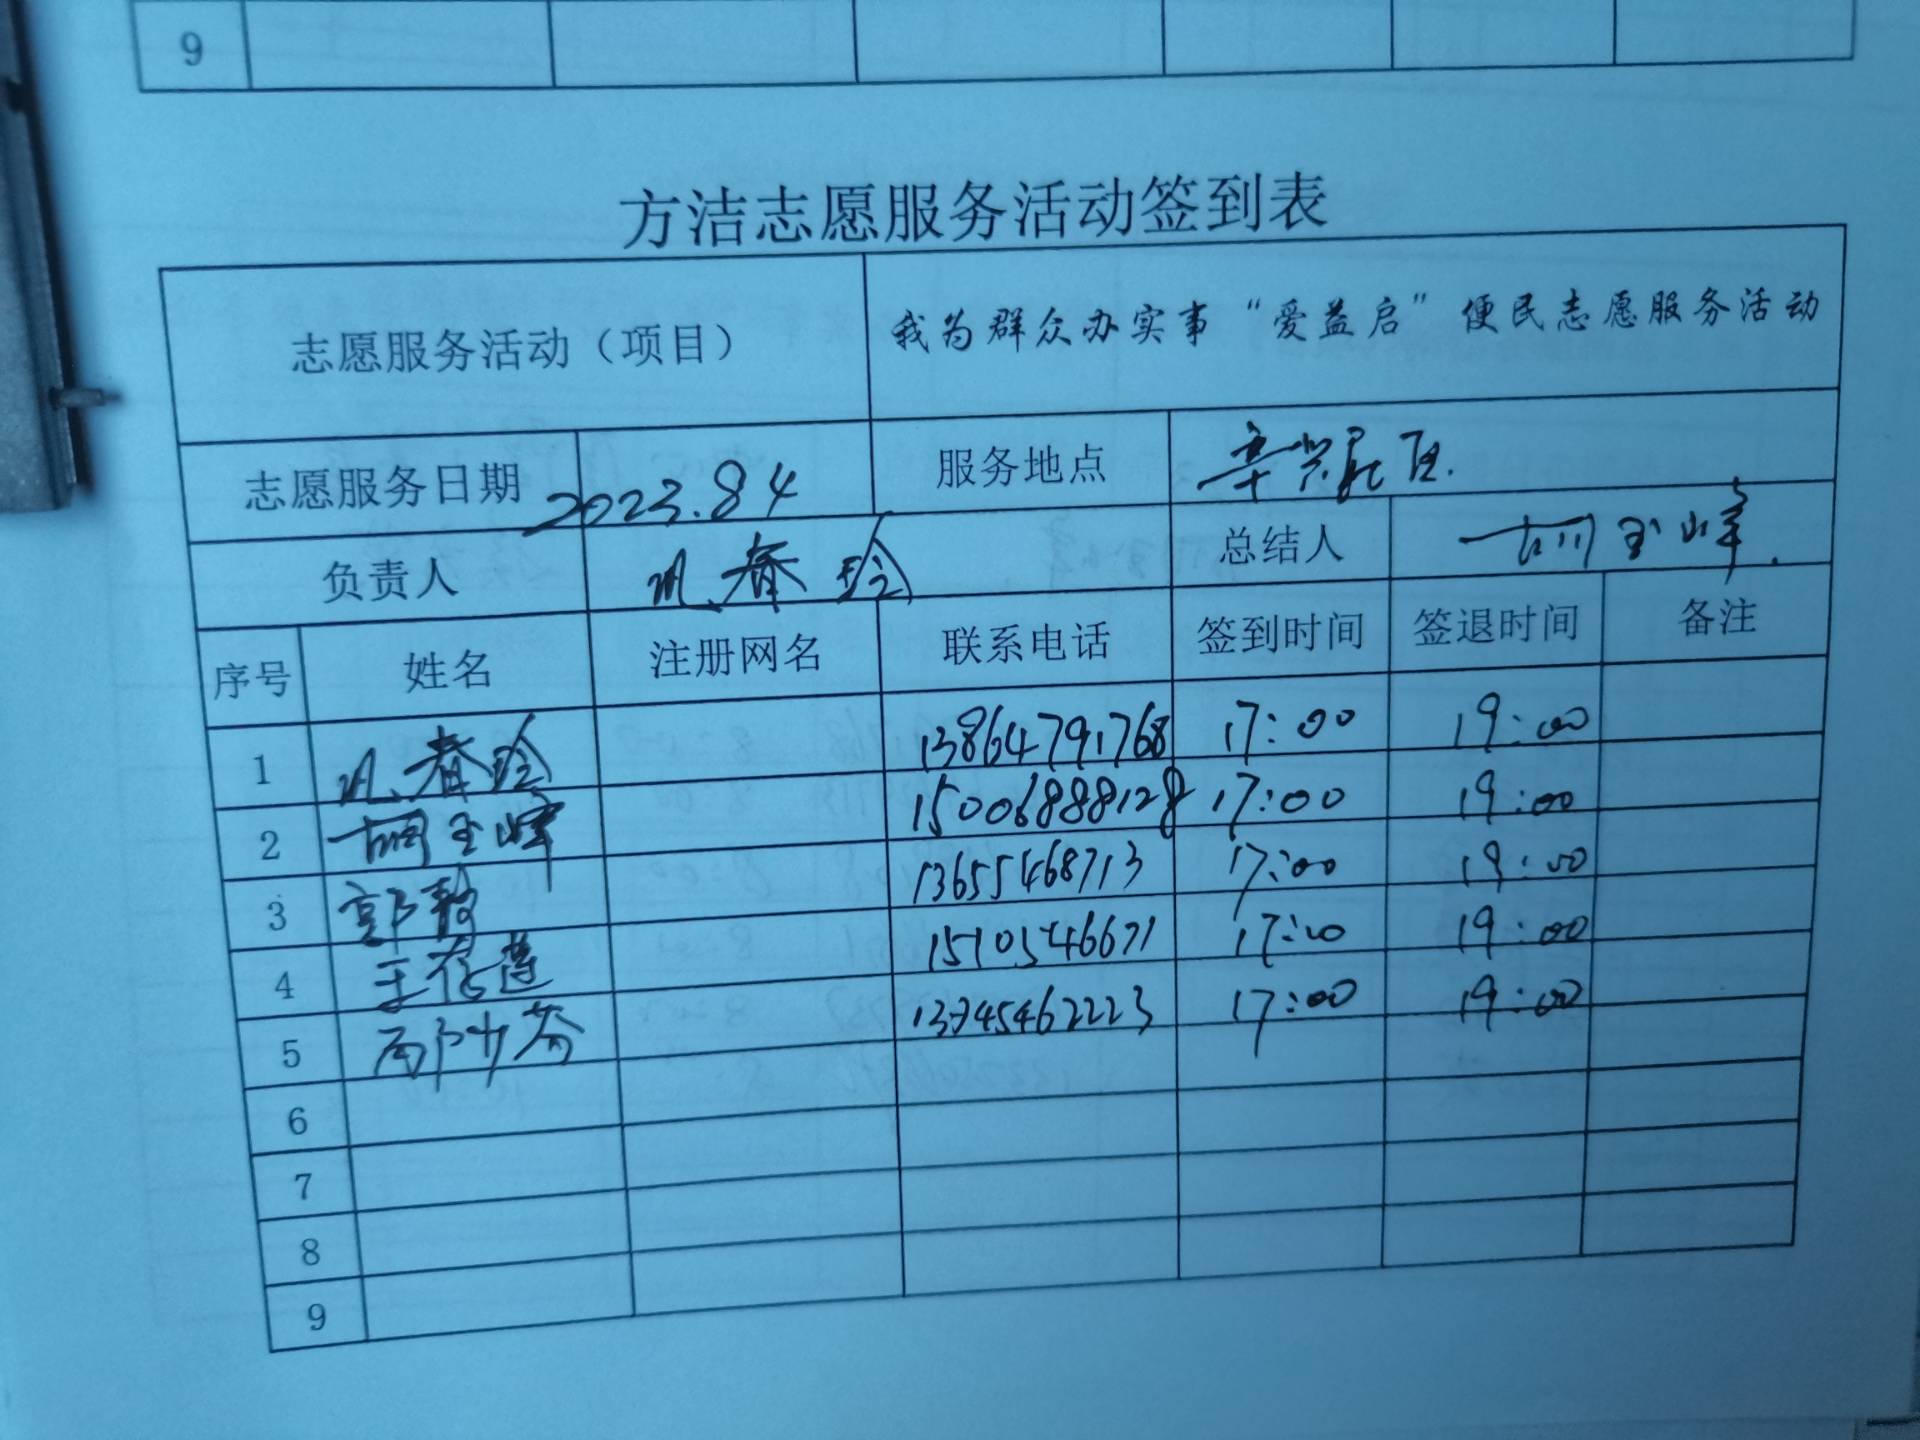 9
方洁志愿服务活动签到表
志愿服务活动（项目） 我为群众办实事“爱益启”便民志愿服务活动
志愿服务日期 2023.8.4 服务地点
负责人 春玲 总结人 胡玉峰
序号 姓名 注册网名 联系电话 签到时间 签退时间 备注
1 春玲 13864791768 17:00 19:00
2 胡玉峰 15006888128 17:00 19:00
3 郭敏 13655468713 17:00 19:00
4 王存莲 1510546671 17:00 19:00
5 13345462223 17:00 19:00
6
7
8
9